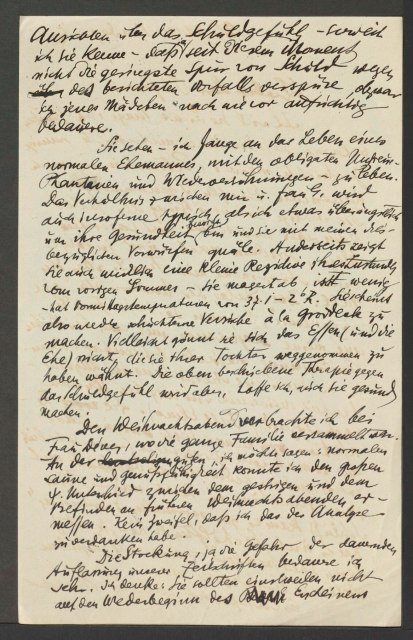 Ansichten über das Schuldgefühl – soweit
ich sie kenne – daß seit diesem Moment
nicht die geringste Spur von Schuld wegen
des berichteten Vorfalls verspüre, obzwar
ich jenes Mädchen nach wie vor aufrichtig
bedauere.
Sie sehen – ich fange an das Leben eines
normalen Ehemannes, mit den obligaten
Phantasien und Wiederversöhnungen – zu leben.
Das Verhältnis zwischen mir u. frau G. wird
auch insoferne typisch, als ich etwas überängstlich
um ihre Gesundheit bin und sie mit meinen
bezüglichen Vorwürfen quäle. Anderseits zeigt
Sie auch wirklich eine kleine Regidive ihres Zustands
vom vorigen Sommer – Sie magert ab, ißt wenig
– hat Vormittagstemperaturen von 37·1–2°. Sie scheint
also wieder schüchterne Versuche à la Groddeck zu
machen. Vielleicht gönnt sie sich das Essen (und die
Ehe) nicht, die sie ihrer Tochter weggenommen zu
haben wähnt. Die oben beschriebene Therapie gegen
das Schuldgefühl wird aber, hoffe ich, auch sie gesund
machen.
Den Weihnachtsabend verbrachte ich bei
Frau Dénes, wo die ganze Familie versammelt war.
An der guten, ich möchte sagen: normalen
Laune und Genußfähigkeit konnte ich den großen
Unterschied zwischen dem gestrigen und dem
Befinden an früheren Weihnachtsabenden er-
messen. Kein Zweifel, daß ich das der Analyse
zu verdanken habe.
Die Stockung, ja die Gefahr der dauernden
Auflassung unserer Zeitschriften bedaure ich
sehr. Ich denke: Sie sollten einstweilen nicht
auf den Wiederbeginn des Erscheinens